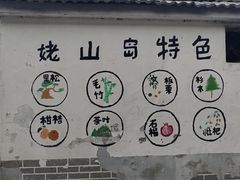 姥山岛特色
黑松
毛竹
板栗
杉木
柑桔
茶叶
石榴
枇杷